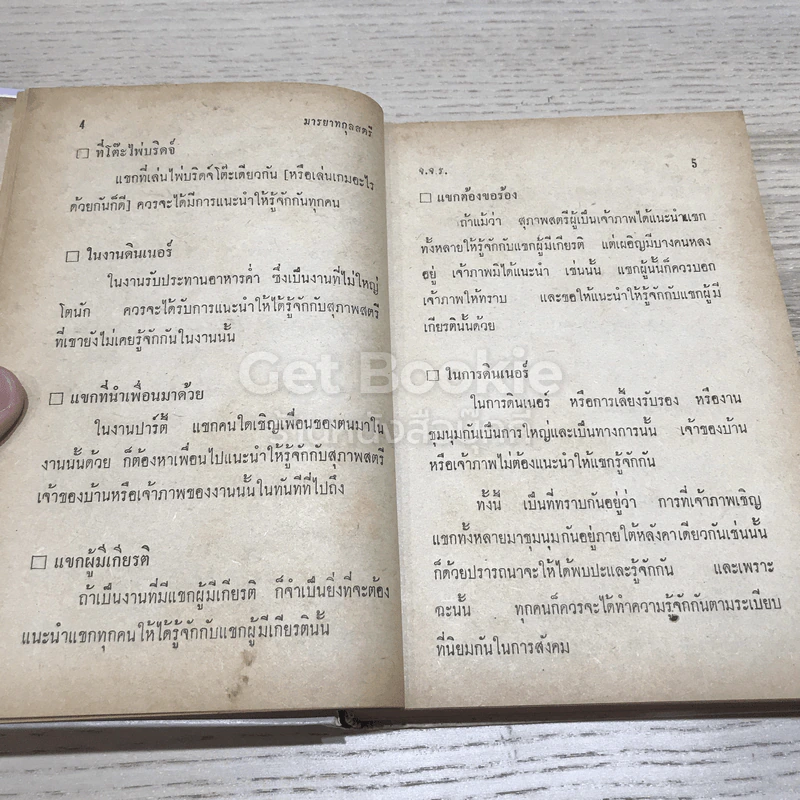 4 มารยาทกุลสตรี
□ ที่โต๊ะไพ่บริดจ์
แขกที่เล่นไพ่บริดจ์โต๊ะเดียวกัน [หรือเล่นเกมอะไร
ด้วยกันก็ดี] ควรจะได้มีการแนะนำให้รู้จักกันทุกคน
□ ในงานดินเนอร์
ในงานรับประทานอาหารค่ำ ซึ่งเป็นงานที่ไม่ใหญ่
โตนัก ควรจะได้รับการแนะนำให้ได้รู้จักกับสุภาพสตรี
ที่เขายังไม่เคยรู้จักกันในงานนั้น
□ แขกที่นำเพื่อนมาด้วย
ในงานปาร์ตี้ แขกคนใดเชิญเพื่อนของตนมาใน
งานนั้นด้วย ก็ต้องหาเพื่อนไปแนะนำให้รู้จักกับสุภาพสตรี
เจ้าของบ้านหรือเจ้าภาพของงานนั้นในทันทีที่ไปถึง
□ แขกผู้มีเกียรติ
ถ้าเป็นงานที่มีแขกผู้มีเกียรติ ก็จำเป็นยิ่งที่จะต้อง
แนะนำแขกทุกคนให้ได้รู้จักกับแขกผู้มีเกียรตินั้น
จ.จ.ร. 5
□ แขกต้องขอร้อง
ถ้าแม้ว่า สุภาพสตรีผู้เป็นเจ้าภาพได้แนะนำแขก
ทั้งหลายให้รู้จักกับแขกผู้มีเกียรติ แต่เผอิญมีบางคนหลง
อยู่ เจ้าภาพมิได้แนะนำ เช่นนั้น แขกผู้นั้นก็ควรบอก
เจ้าภาพให้ทราบ และขอให้แนะนำให้รู้จักกับแขกผู้มี
เกียรตินั้นด้วย
□ ในการดินเนอร์
ในการดินเนอร์ หรือการเลี้ยงรับรอง หรืองาน
ชุมนุมกันเป็นการใหญ่และเป็นทางการนั้น เจ้าของบ้าน
หรือเจ้าภาพไม่ต้องแนะนำให้แขกรู้จักกัน
ทั้งนี้ เป็นที่ทราบกันอยู่ว่า การที่เจ้าภาพเชิญ
แขกทั้งหลายมาชุมนุมกันอยู่ภายใต้หลังคาเดียวกันเช่นนั้น
ก็ด้วยปรารถนาจะให้ได้พบปะและรู้จักกัน และเพราะ
ฉะนั้น ทุกคนก็ควรจะได้ทำความรู้จักกันตามระเบียบ
ที่นิยมกันในการสังคม
Get Bookie